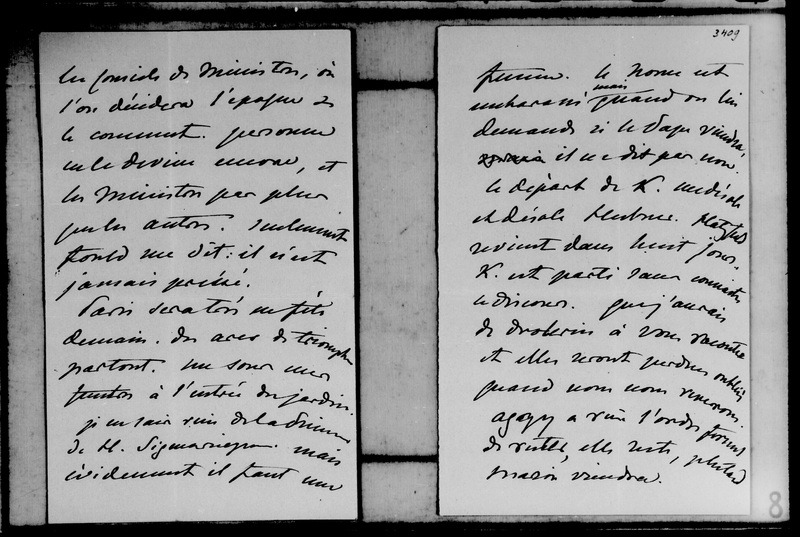 les conseils des Ministres, où
l'on décidera l'époque et
le comment. personne
ne le devine encore, et
les Ministres pas plus
que les autres. seulement
fould me dit: il n'est
jamais
Paris sera très en fête
demain. des arcs de triomphe
partout. sous mes
fenêtres à l'entrée du jardin.
je ne sais rien de la
de H. Sigmaringen. mais
évidemment il faut une
3409
femme. le nonce est
embarassé mais quand on lui
demande si le Pape viendra,
il ne dit pas non.
le départ de K. me désole
et désole Hubner. Hatzfeld
revient dans huit jours.
K. est parti sans connaitre
le discours. que j'aurais
de droleries à vous raconter
et elles seront perdues oubliées
quand nous nous reverrons.
agagy a reçu l'ordre formel
de rester, elle reste, plus tard
viendra.
8